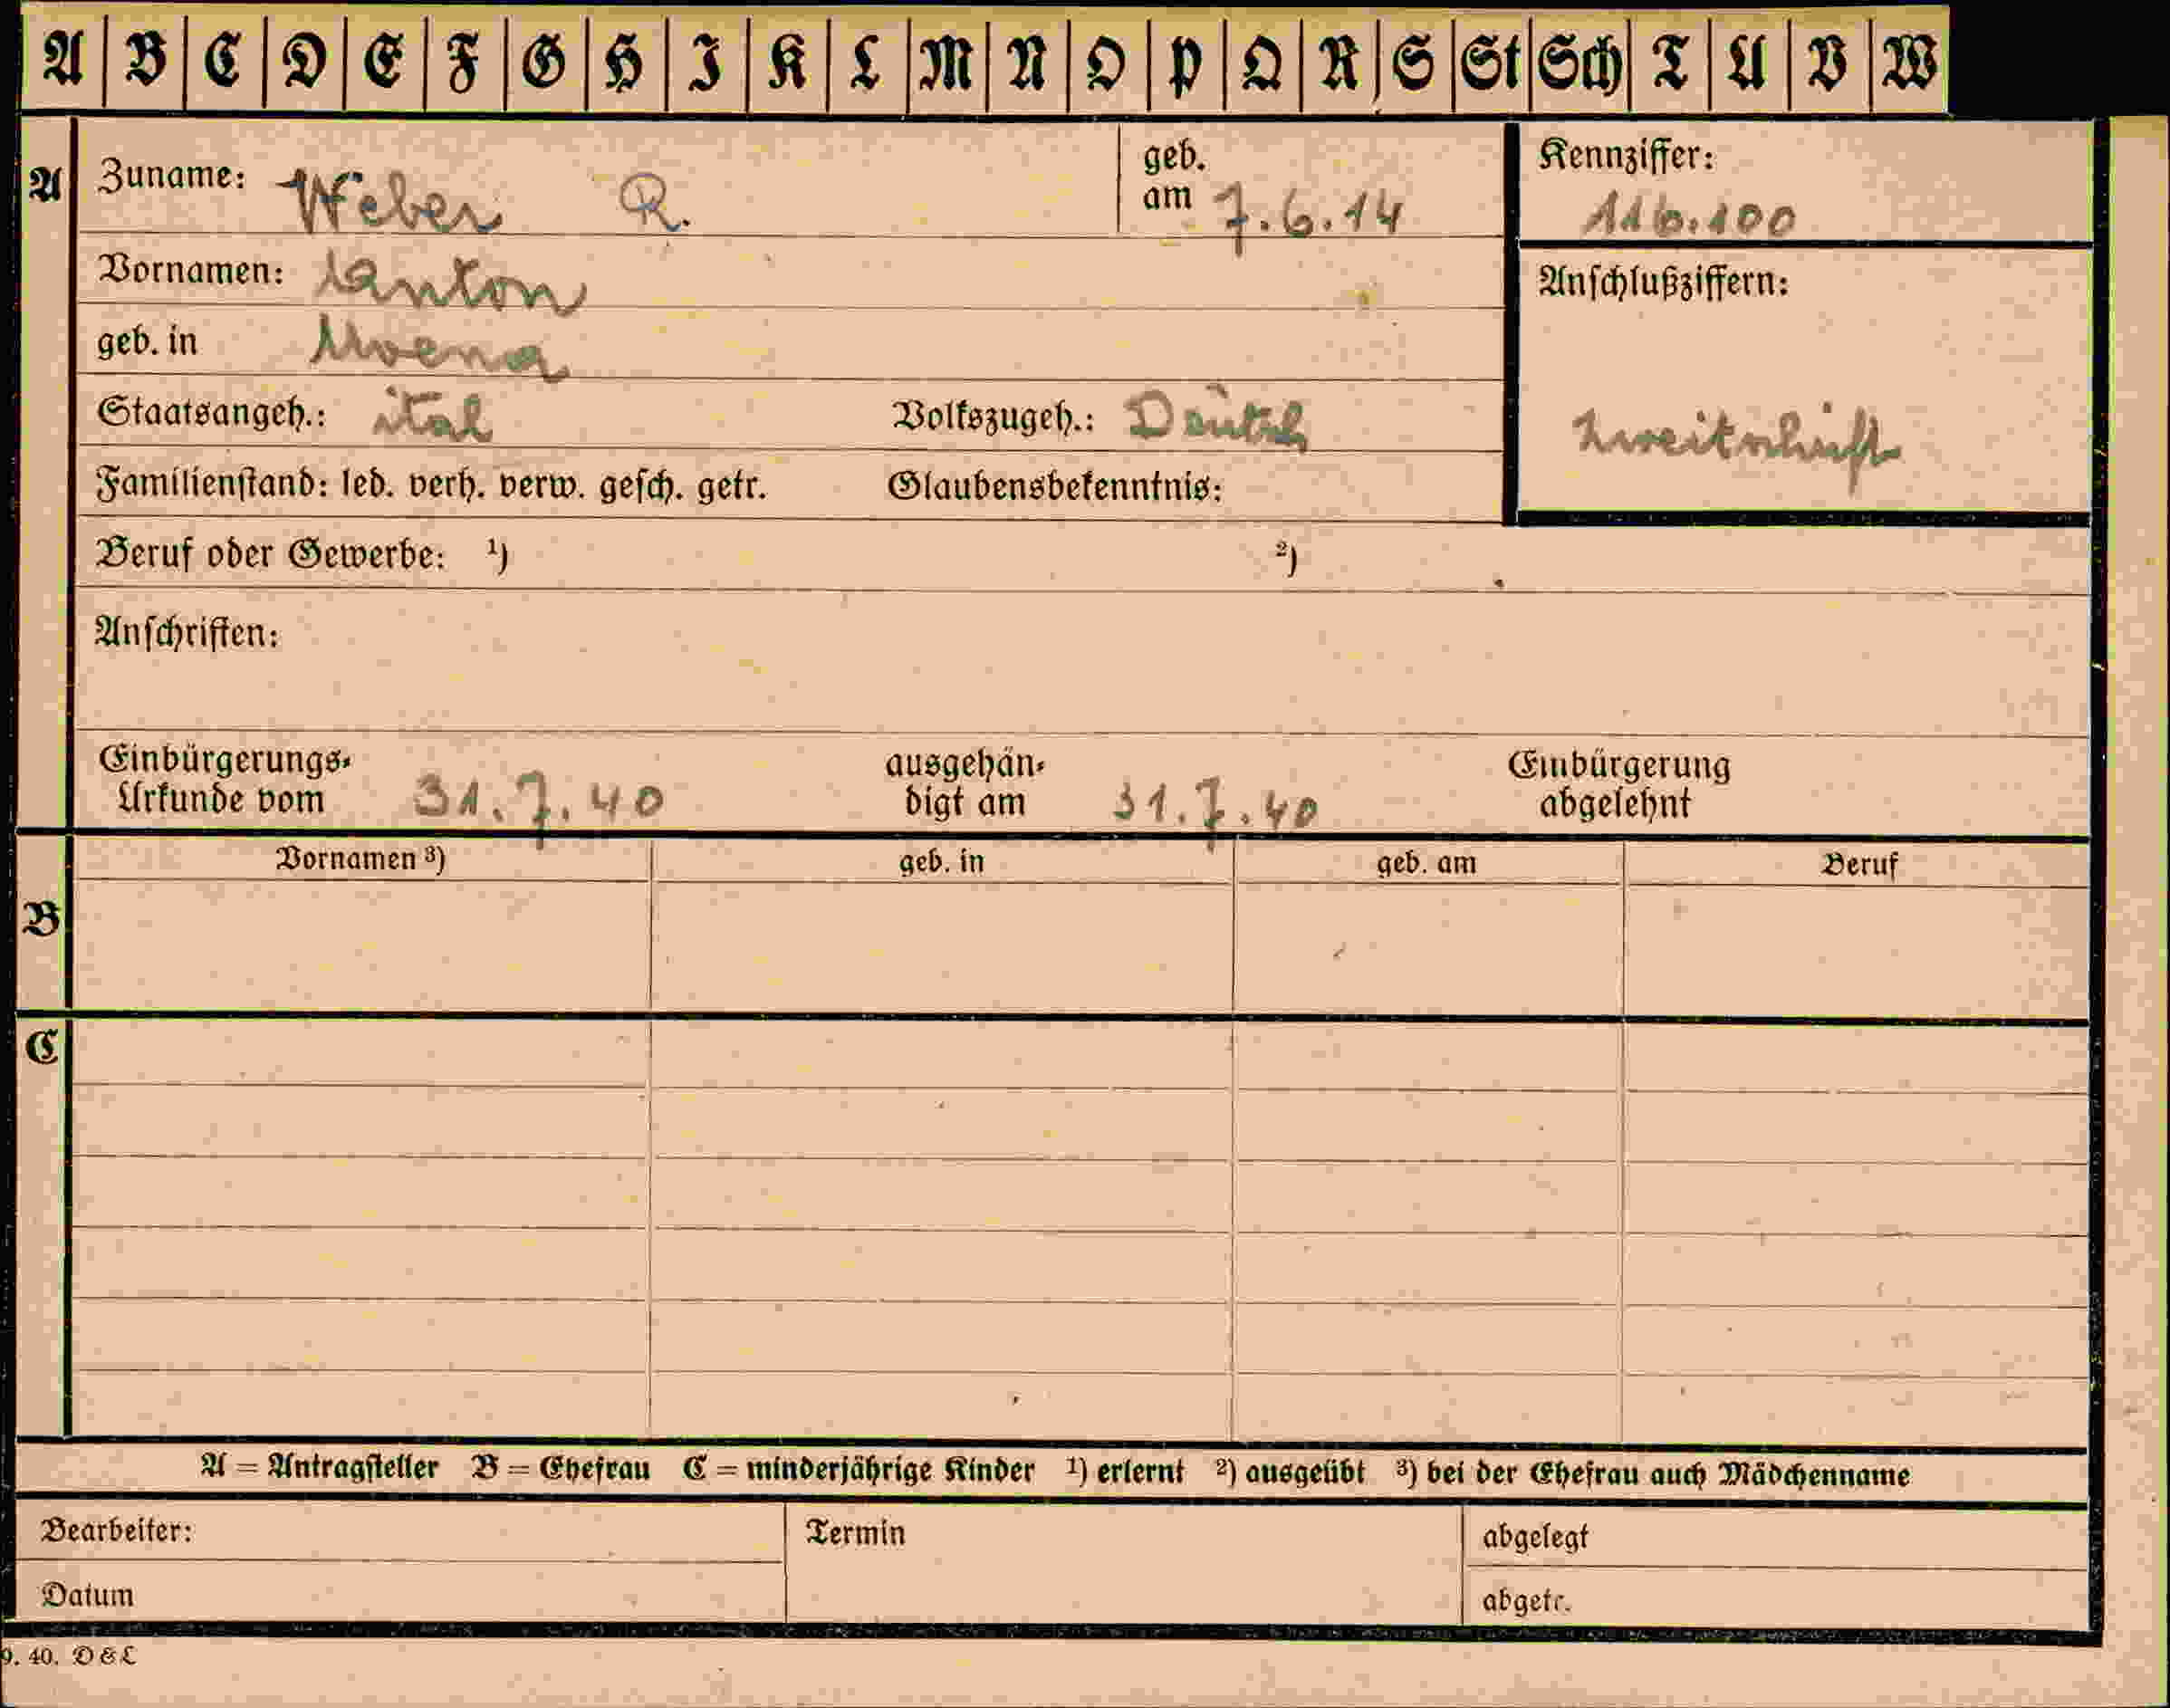 A B C D E F G H I K L M N O P Q R S St Sch T U V W
A Zuname: Weber R. geb. am 7.6.14 Kennziffer: 116.100
Vornamen: Anton Anschlußziffern:
geb. in Moena
Staatsangeh.: ital Volkszugeh.: Deutsch Zweitschrift
Familienstand: led. verh. verw. gesch. getr. Glaubensbekenntnis:
Beruf oder Gewerbe: ¹) ²)
Anschriften:
Einbürgerungs- ausgehän- Einbürgerung
Urkunde vom 31.7.40 digt am 31.7.40 abgelehnt
Vornamen ³) geb. in geb. am Beruf
B
C
A = Antragsteller B = Ehefrau C = minderjährige Kinder ¹) erlernt ²) ausgeübt ³) bei der Ehefrau auch Mädchenname
Bearbeiter: Termin abgelegt
Datum abgetr.
9. 40. D & L